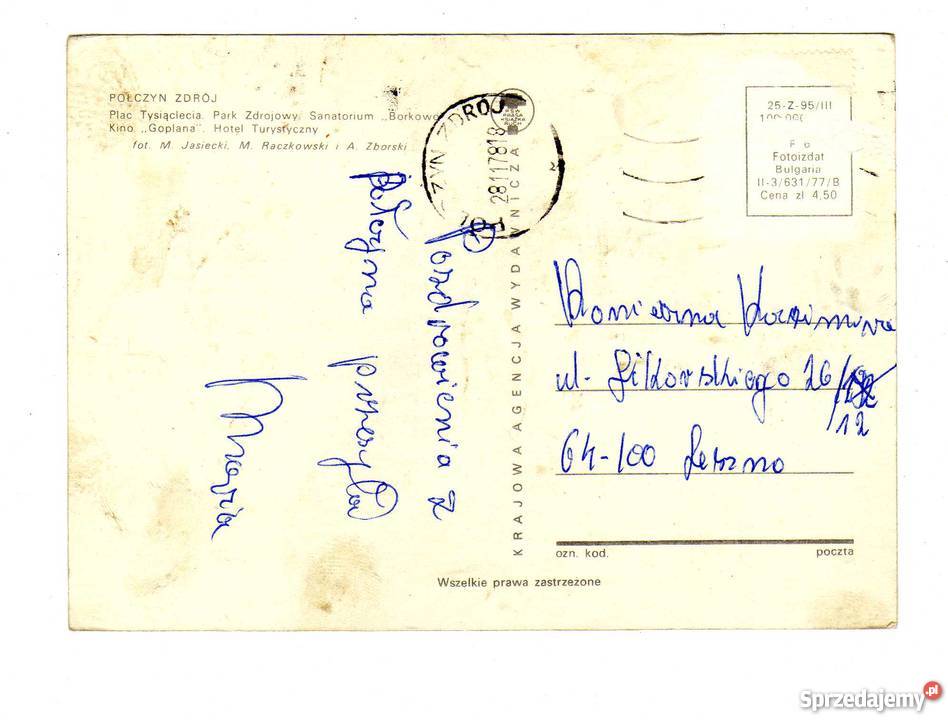 POŁCZYN ZDRÓJ
Plac Tysiąclecia. Park Zdrojowy. Sanatorium „Borkowo
Kino „Goplana". Hotel Turystyczny
fot. M. Jasiecki, M. Raczkowski i A. Zborski
ZYN ZDRÓJ
28117818
KRAJOWA AGENCJA WYDAWNICZA
25-Z-95/III
Fotoizdat
Bulgaria
II-3/631/77/B
Cena zł 4,50
Pozdrowienia z
Połczyna przesyła
Maria
Kazimiera
ul. 26/
12
64-100 Leszno
ozn. kod. poczta
Wszelkie prawa zastrzeżone
Sprzedajemy.pl